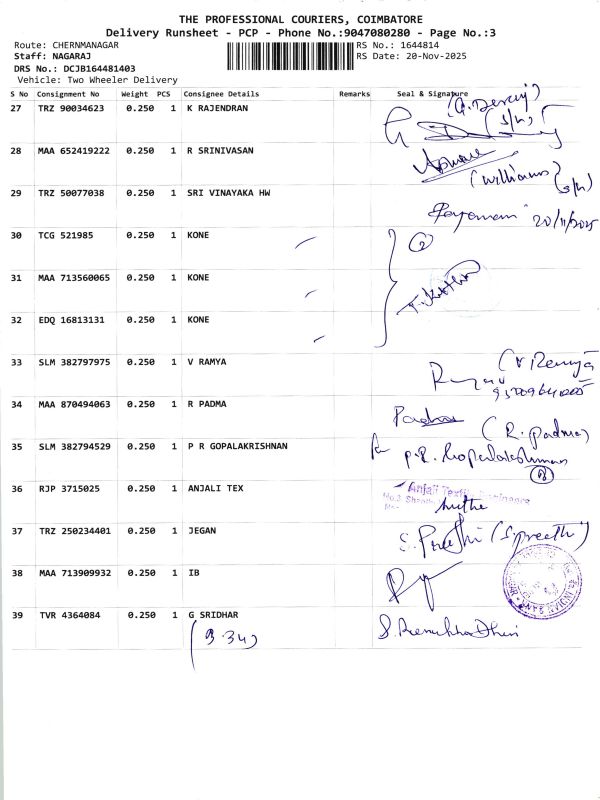 THE PROFESSIONAL COURIERS, COIMBATORE
Delivery Runsheet - PCP - Phone No.:9047080280 - Page No.:3
Route: CHERNMANAGAR RS No.: 1644814
Staff: NAGARAJ RS Date: 20-Nov-2025
DRS No.: DCJB164481403
Vehicle: Two Wheeler Delivery
S No Consignment No Weight PCS Consignee Details Remarks Seal & Signature
27 TRZ 90034623 0.250 1 K RAJENDRAN
28 MAA 652419222 0.250 1 R SRINIVASAN
(Williams)
29 TRZ 50077038 0.250 1 SRI VINAYAKA HW
20/11/2025
30 TCG 521985 0.250 1 KONE
31 MAA 713560065 0.250 1 KONE
32 EDQ 16813131 0.250 1 KONE
33 SLM 382797975 0.250 1 V RAMYA
34 MAA 870494063 0.250 1 R PADMA
Padma (R. padma)
35 SLM 382794529 0.250 1 P R GOPALAKRISHNAN
P.R. Gopalakrishnan
36 RJP 3715025 0.250 1 ANJALI TEX
Anjali Textile Engineers
37 TRZ 250234401 0.250 1 JEGAN
S. Preethi (S.preethi)
38 MAA 713909932 0.250 1 IB
39 TVR 4364084 0.250 1 G SRIDHAR